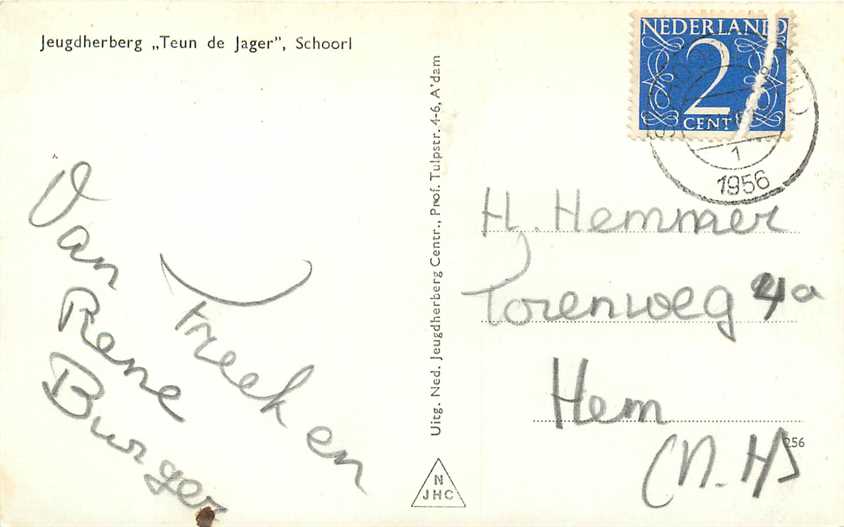 Jeugdherberg „Teun de Jager”, Schoorl
Van Freek en
Rene
Burger
Uitg. Ned. Jeugdherberg Centr., Prof. Tulpstr. 4-6, A'dam
N
JHC
NEDERLAND
2
CENT
1
1956
H. Hemmer
Torenweg 4a
Hem
(N.H)
256